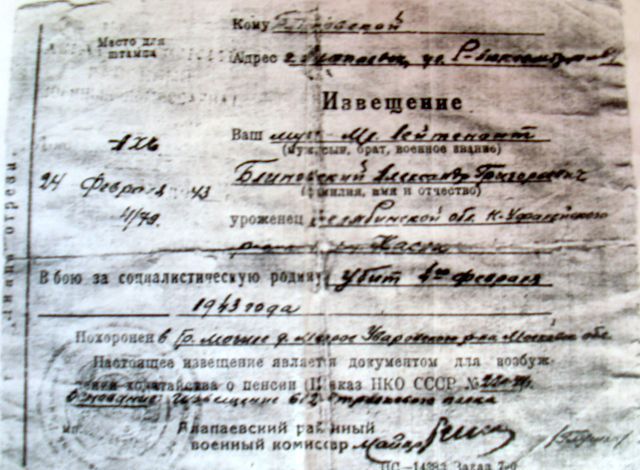 Кому Блиновской
Место для
штампа
Адрес г. Алапаевск, ул. Р-
Извещение
Ваш муж Мл. лейтенант
(муж, сын, брат, военное звание)
24 февраля 43
Блиновский Александр Григорьевич
(фамилия, имя и отчество)
4/79.
уроженец Челябинской обл. Н-Уфалейского
Касли
В бою за социалистическую родину убит 4го февраля
1943 года
Похоронен в бр. могиле д. Уваровского р-на Московс обл
Настоящее извещение является документом для возбуж-
дения ходатайства о пенсии (Приказ НКО СССР №
Основание: извещение 612 стрелкового полка
Алапаевский районный
мп.
военный комиссар майор
Заказ
линия отреза